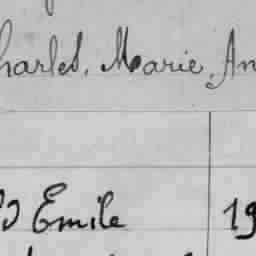 harles, Marie, An
Emile 19